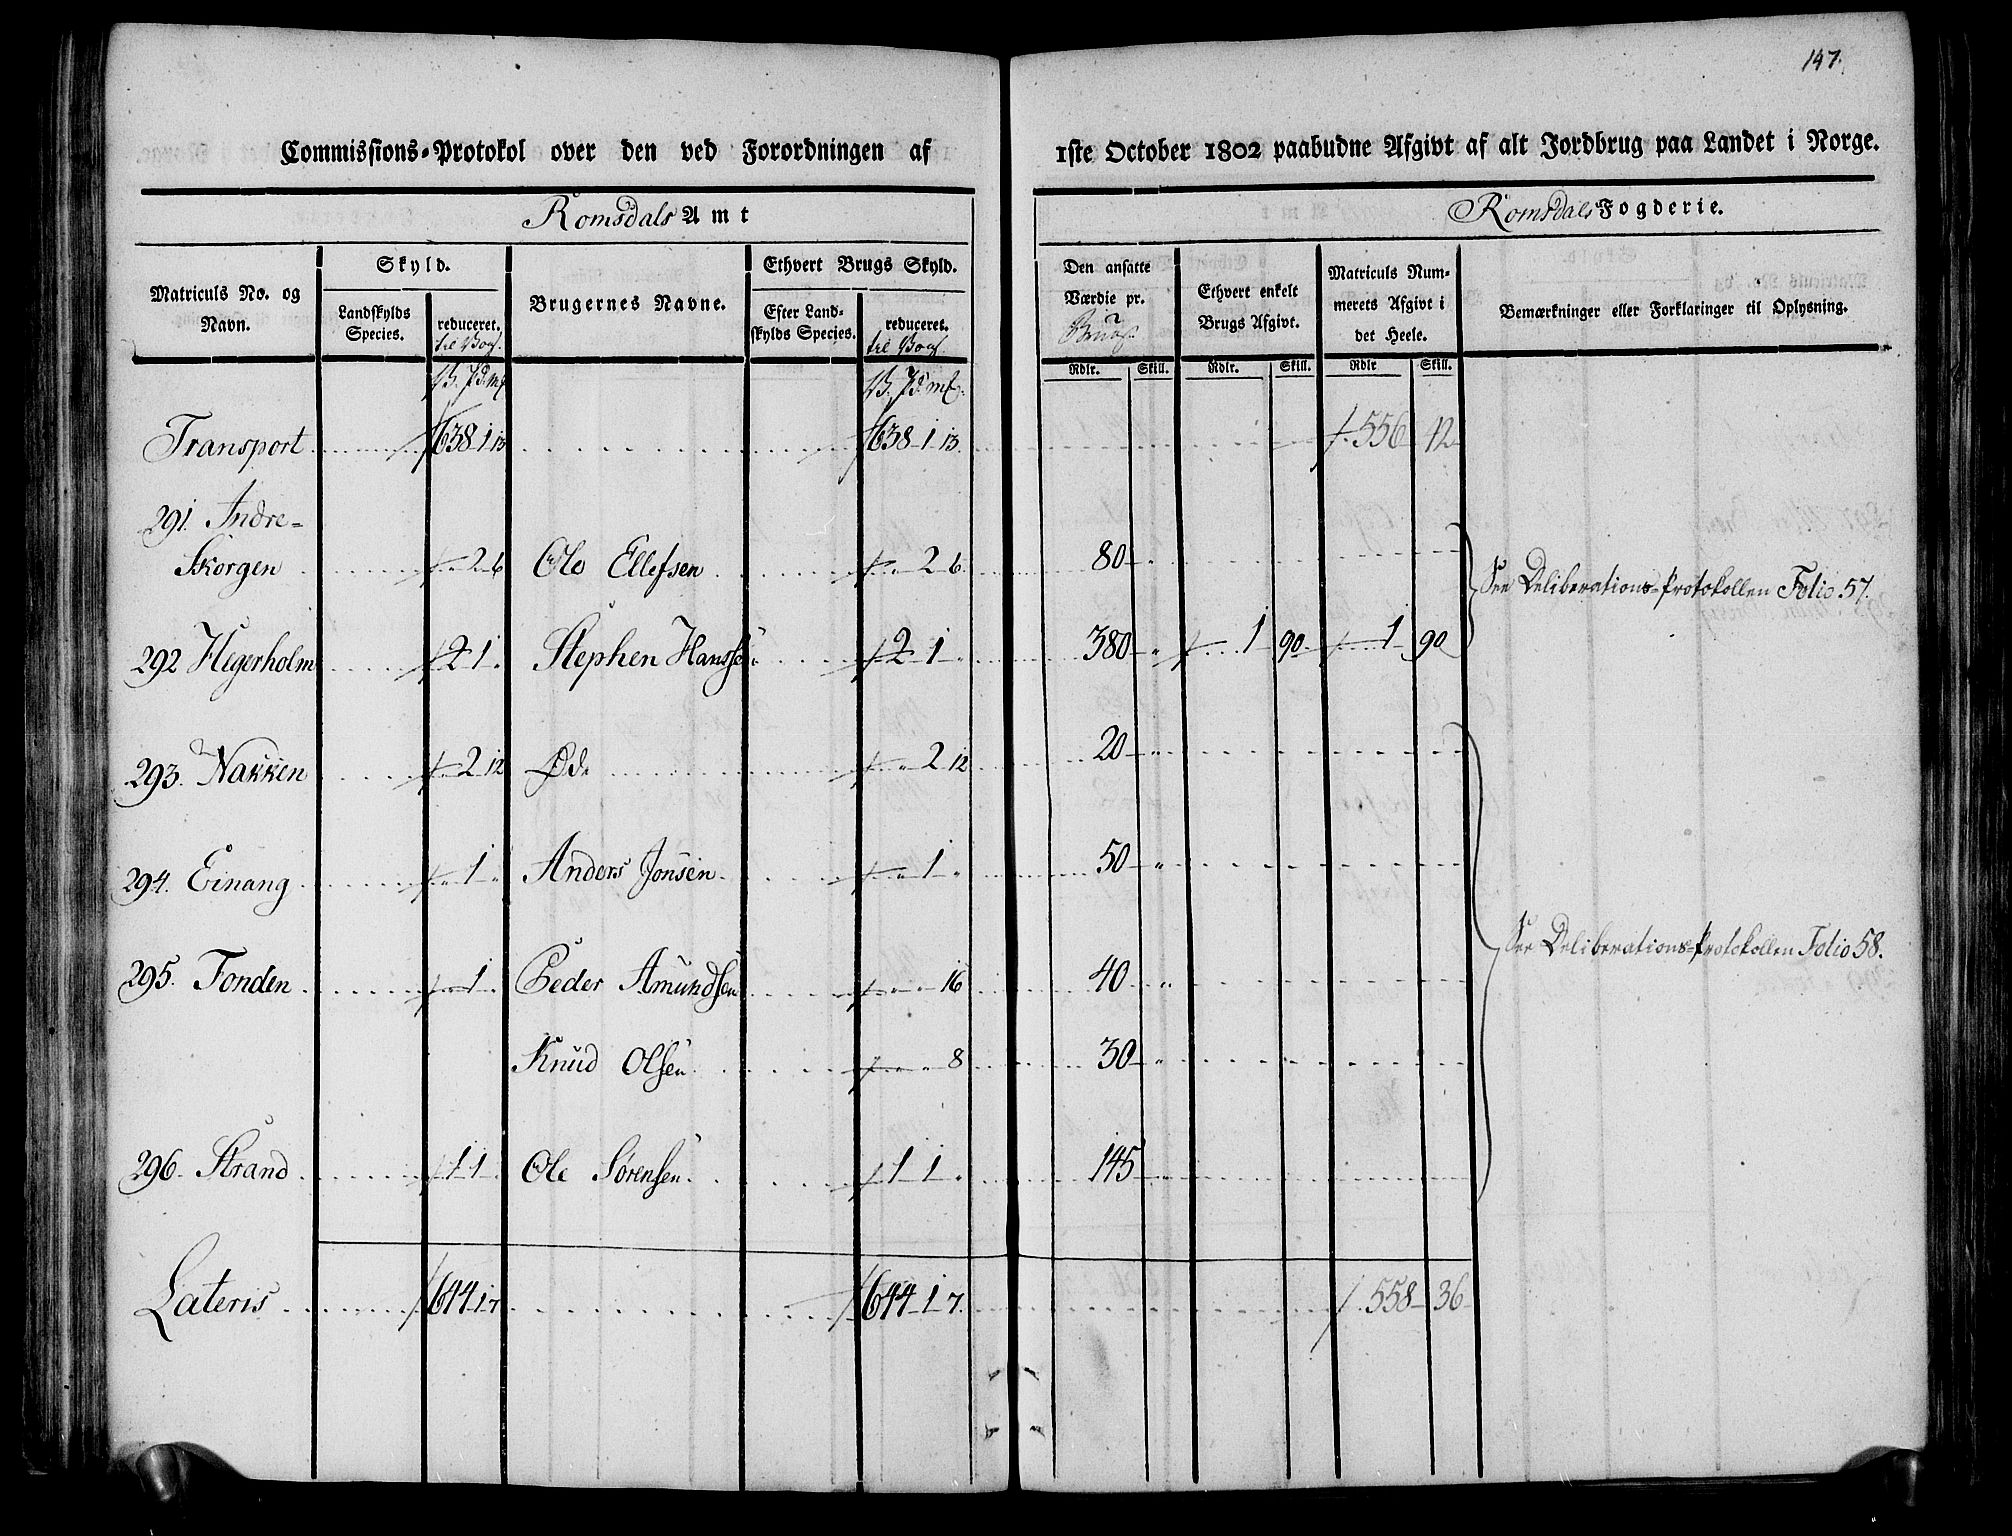 147.
Commissions-Protokol over den ved Forordningen af 1ste October 1802 paabudne Afgivt af alt Jordbrug paa Landet i Norge.
Romsdals Amt
Romsdals Fogderie.
Matriculs No. og Navn.
Skyld.
Landskylds Species.
reduceret. til Vog.
Brugernes Navne.
Ethvert Brugs Skyld.
Efter Landskylds Species.
reduceret. til Vog.
Den ansatte Værdie pr. Brug.
Ethvert enkelt Brugs Afgivt.
Matriculs Nummerets Afgivt i det Heele.
Bemærkninger eller Forklaringer til Oplysning.
V. Pd. mk. V. Pd. mk. Rdlr. Skill. Rdlr. Skill. Rdlr Skill.
Transport 638 1 13 638 1 13. 556 12
291. Indre-
Skorgen " 2 6 Ole Ellefsen " 2 6 80 "
See Deliberations-Protokollen Folio 57.
292 Hegerholm 2 1 " Stephen Hanssen 2 1 " 380 " 1 90 1 90
293. Nakken " 2 12 Øde " 2 12 20 "
294. Einang " 1 " Anders Jonsen " 1 " 50 "
See Deliberations-Protokollen Folio 58.
295. Fonden " 1 " Peder Amundsen " " 16 40 "
Knud Olsen " " 8 30 "
296. Strand 1 1 " Ole Sørensen 1 1 " 145 "
Lateris 644 1 7 644 1 7. 558 36